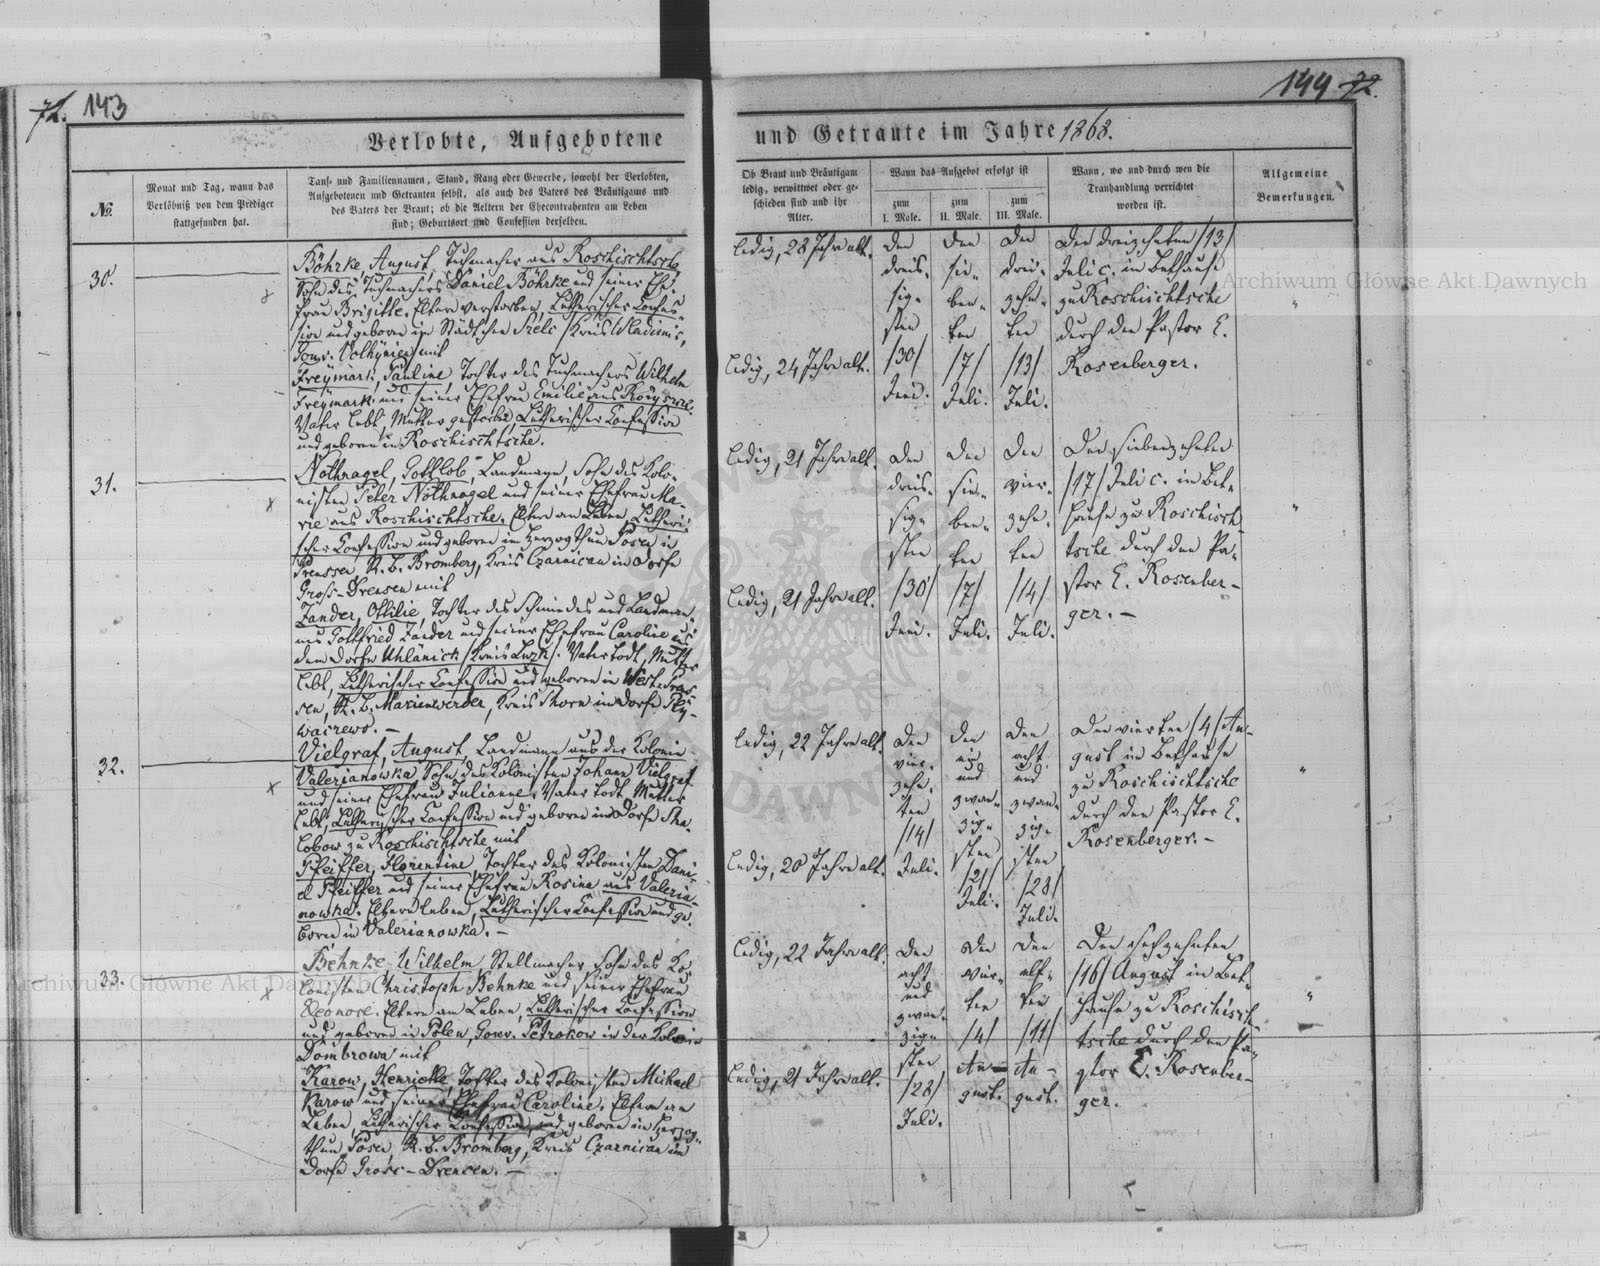 71. 143
Verlobte, Aufgebotene
№.
Monat und Tag, wann das
Verlöbniß von dem Prediger
stattgefunden hat.
Tauf- und Familiennamen, Stand, Rang oder Gewerbe, sowohl der Verlobten,
Aufgebotenen und Getrauten selbst, als auch des Vaters des Bräutigams und
des Vaters der Braut; ob die Aeltern der Ehecontrahenten am Leben
sind; Geburtsort und Confession derselben.
30.
Böhrke, August, Tuchmacher aus Roschischtsch,
Sohn des Tuchmachers Daniel Böhrke und seiner Ehe-
frau Brigitte. Eltern verstorben, Lutherischer Confes-
sion und geboren im Städtchen Kreis Wladimir,
Gouv. Volhynien mit
Freymark, Pauline, Tochter des Tuchmachers Wilhelm
Freymark und seiner Ehefrau Emilie aus
Vater lebt, Mutter gestorben, Lutherischer Confession
und geboren in Roschischtsche.
31.
Nothnagel, Gottlob, Landmann, Sohn des Kolo-
nisten Peter Nothnagel und seiner Ehefrau Ma-
rie aus Roschischtsche. Eltern am Leben, Lutheri-
scher Confession und geboren im Herzogthum Posen in
Preussen, R. B. Bromberg, Kreis Czarnican im Dorfe
Gross-Drensen mit
Zander, Ottilie, Tochter des Schmiedes und Landman-
nes Gottfried Zander und seiner Ehefrau Caroline aus
dem Dorfe Uhlänick /Kreis Luzk/. Vater todt, Mutter
lebt, Lutherischer Confession und geboren in West-Preus-
sen, R. B. Marienwerder, Kreis Thorn im Dorfe
32.
Vielgraf, August, Landmann aus der Kolonie
Valerianowka, Sohn des Kolonisten Johann Vielgraf
und seiner Ehefrau Julianne. Vater todt, Mutter
lebt, Lutherischer Confession und geboren im Dorfe Sha-
lobow zu Roschischtsche mit
Pfeiffer, Florentine, Tochter des Kolonisten Dani-
el Pfeiffer und seiner Ehefrau Rosine aus Valeria-
nowka. Eltern leben, Lutherischer Confession und ge-
boren in Valerianowka. –
33.
Behnke, Wilhelm, Stellmacher, Sohn des Ko-
lonisten Christoph Behnke und seiner Ehefrau
Eleonore. Eltern am Leben, Lutherischer Confession
und geboren in Polen, Gouv. Petrokow in der Kolonie
Dombrowa mit
Karow, Henriette, Tochter des Kolonisten Michael
Karow und seiner Ehefrau Caroline. Eltern am
Leben, Lutherischer Confession, und geboren im Herzog-
thum Posen, R. B. Bromberg, Kreis Czarnican im
Dorfe Gross-Drensen. –
144 72.
und Getraute im Jahre 1868.
Ob Braut und Bräutigam
ledig, verwittwet oder ge-
schieden sind und ihr
Alter.
Wann das Aufgebot erfolgt ist
zum
I. Male.
zum
II. Male.
zum
III. Male.
Wann, wo und durch wen die
Trauhandlung verrichtet
worden ist.
Allgemeine
Bemerkungen.
ledig, 28 Jahre alt.
ledig, 24 Jahre alt.
den
dreis-
sig-
sten
/30/
Juni.
den
sie-
ben-
ten
/7/
Juli.
den
drei-
zehn-
ten
/13/
Juli.
Den dreizehnten /13/
Juli c. im Bethause
zu Roschischtsche
durch den Pastor E.
Rosenberger.
"
ledig, 21 Jahre alt.
ledig, 21 Jahre alt.
den
dreis-
sig-
sten
/30/
Juni.
den
sie-
ben-
ten
/7/
Juli.
den
vier-
zehn-
ten
/14/
Juli.
Den siebenzehnten
/17/ Juli c. im Bet-
hause zu Roschisch-
tsche durch den Pa-
stor E. Rosenber-
ger. –
"
ledig, 22 Jahre alt.
ledig, 20 Jahre alt.
den
vier-
zehn-
ten
/14/
Juli.
den
ein
und
zwan-
zig-
sten
/21/
Juli.
den
acht
und
zwan-
zig-
sten
/28/
Juli.
Den vierten /4/ Au-
gust im Bethause
zu Roschischtsche
durch den Pastor E.
Rosenberger. –
"
ledig, 22 Jahre alt.
ledig, 21 Jahre alt.
den
acht
und
zwan-
zig-
sten
/28/
Juli.
den
vier-
ten
/4/
Au-
gust.
den
elf-
ten
/11/
Au-
gust.
Den sechzehnten
/16/ August im Bet-
hause zu Roschisch-
tsche durch den Pa-
stor E. Rosenber-
ger.
"
Archiwum Główne Akt Dawnych
Archiwum Główne Akt Dawnych